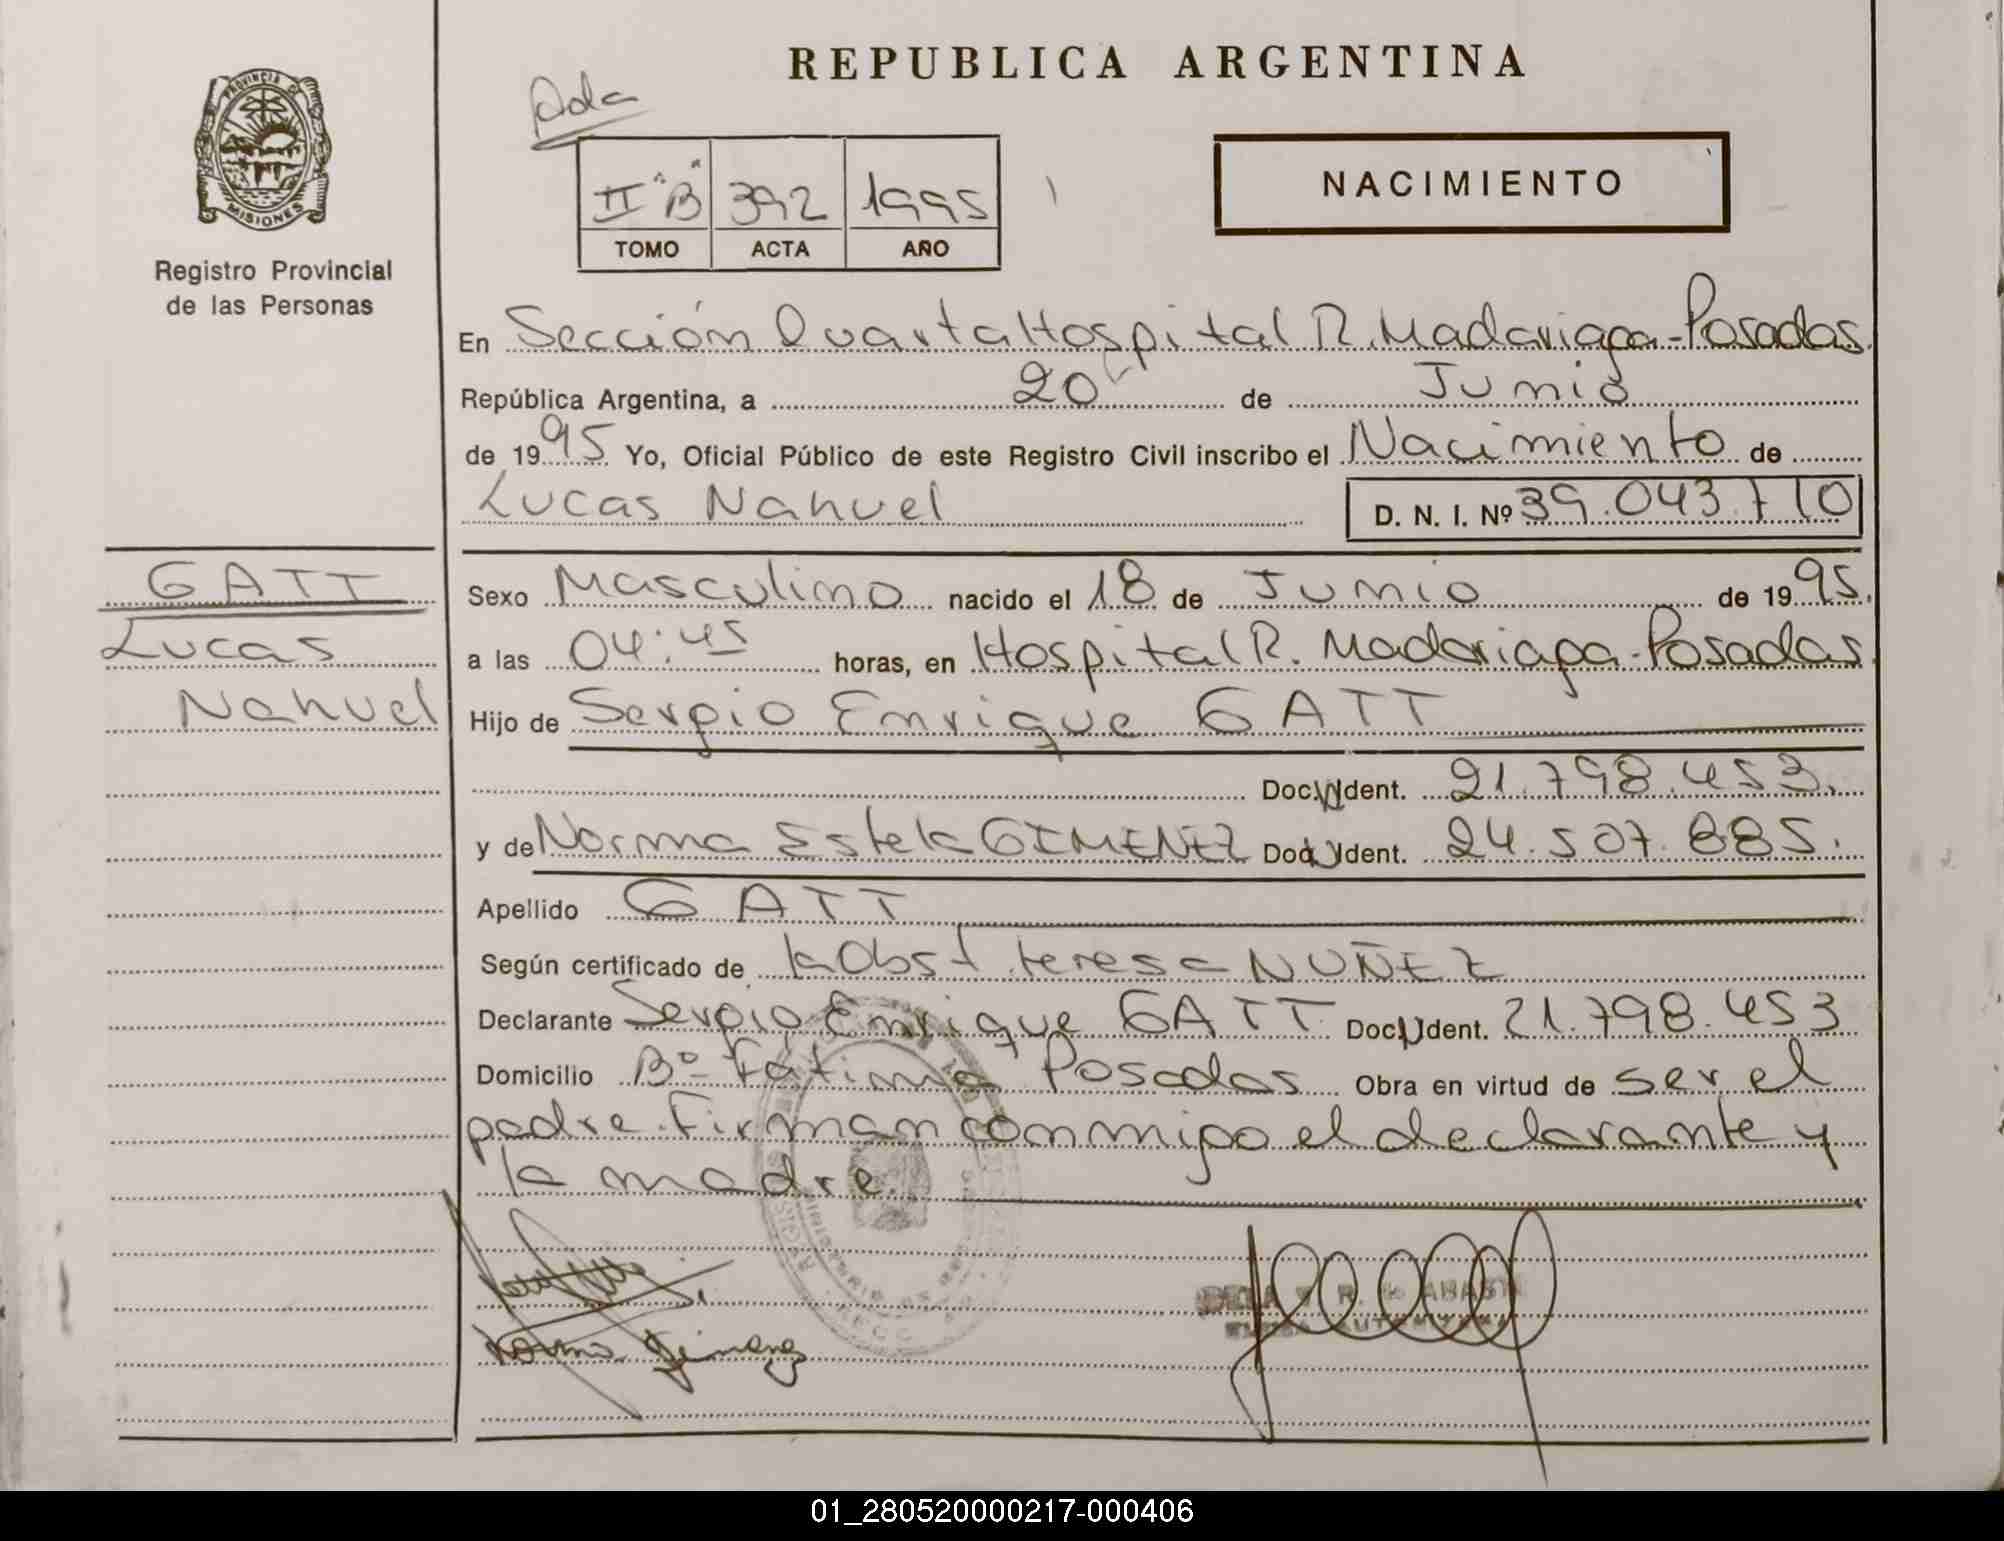 REPUBLICA ARGENTINA
Ada
PROVINCIA DE
MISIONES
Registro Provincial
de las Personas
II "B" 392 1995
TOMO ACTA AÑO
NACIMIENTO
En Sección Quarta Hospital R. Madariaga-Posadas.
República Argentina, a 20 de Junio
de 1995 Yo, Oficial Público de este Registro Civil inscribo el Nacimiento de
Lucas Nahuel D. N. I. Nº 39.043.710
GATT
Lucas
Nahuel
Sexo Masculino nacido el 18 de Junio de 1995.
a las 04:45 horas, en Hospital R. Madariaga-Posadas.
Hijo de Sergio Enrique GATT
Doc. Ident. 21.798.453.
y de Norma Estela GIMENEZ Doc. Ident. 24.507.885.
Apellido GATT
Según certificado de la Obst. teresa NUÑEZ
Declarante Sergio Enrique GATT Doc. Ident. 21.798.453
Domicilio Bº Fátima Posadas Obra en virtud de ser el
padre. Firman conmigo el declarante y
la madre.
Norma Gimenez
01_280520000217-000406